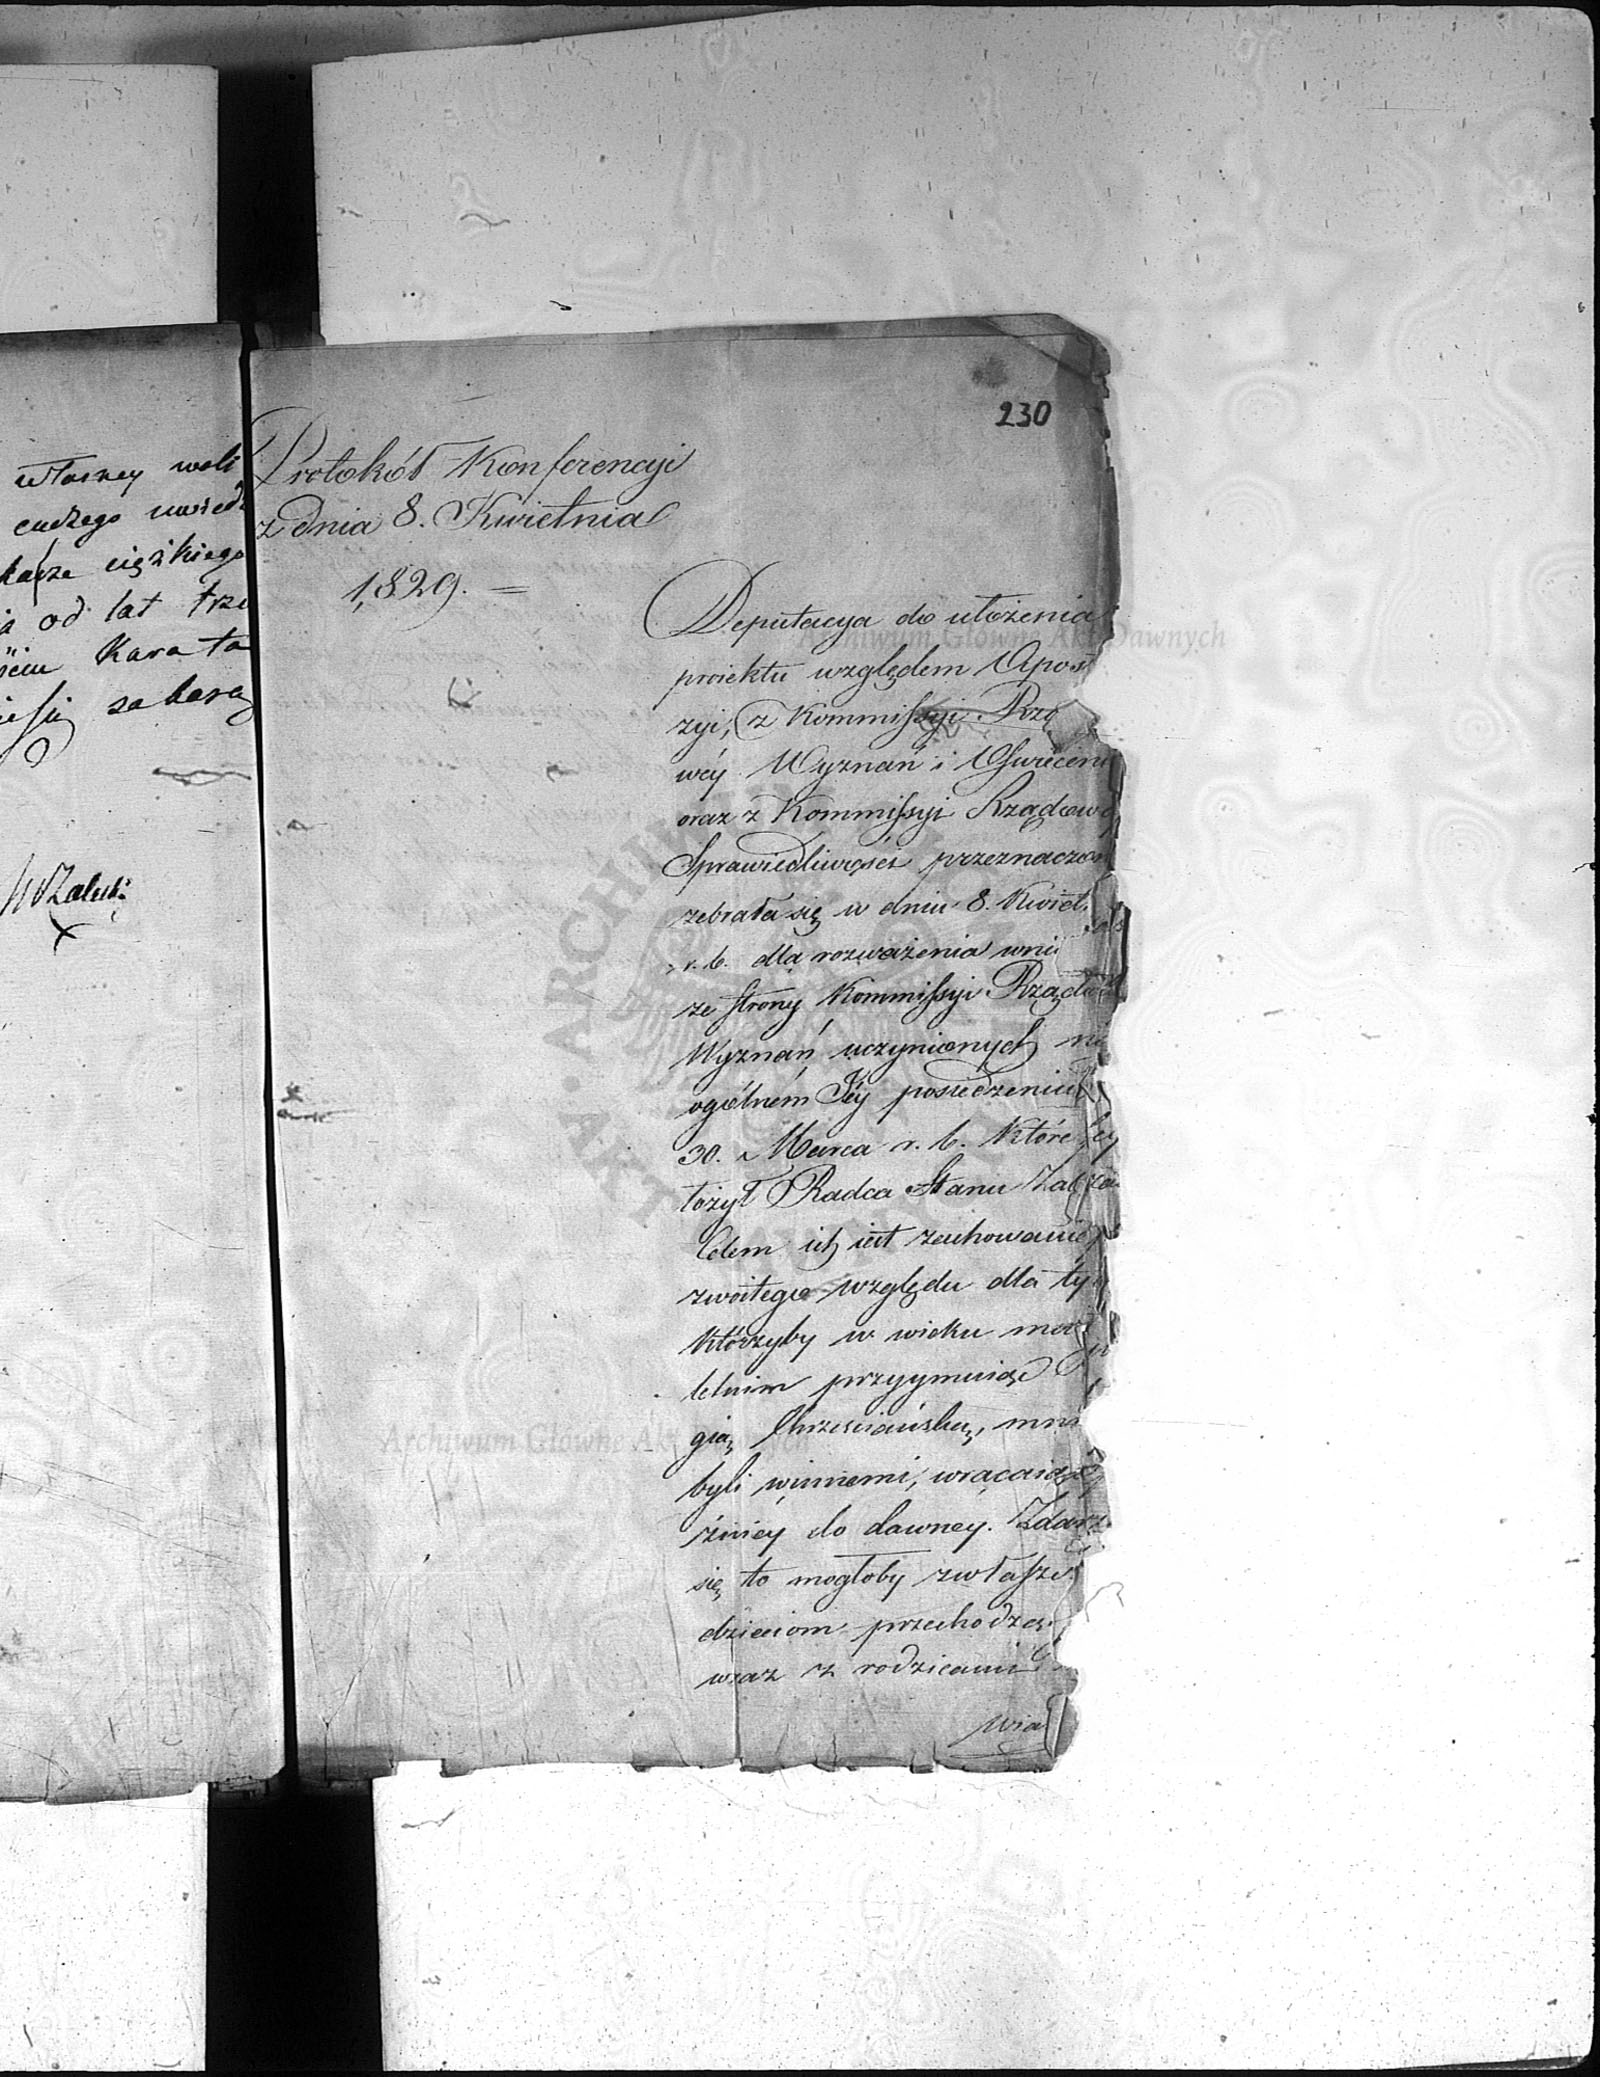 własney woli
cudzego
ciężkiego
od lat trze
kara ta
230
Protokół Konferencyi
z dnia 8. Kwietnia
1829. =
Deputacya do ułożenia
proiektu względem Apos
zyi, z Kommissyi Rzą
wéy Wyznań i Oświéceni
oraz z Kommissyi Rządow
Sprawiedliwości przeznaczon
zebrała się w dniu 8. Kwiet
r. b. dla rozważenia wni
ze strony Kommissyi Rządow
Wyznań uczynionych na
ogólném Jéy posiedzeniu
30. Marca r. b. które
łożył Radca Stanu
Celem ich iest zachowanie
zwoitego względu dla ty
którzyby w wieku mał
letnim przyymuiąc
gią Chrześciańską, mni
byli winnemi, wracaiąc
źniéy do dawnéy. Zdarz
się to mogłoby zwłaszc
dzieciom przechodzą
wraz z rodzicami
wia
Archiwum Główne Akt Dawnych
Archiwum Główne Akt Dawnych